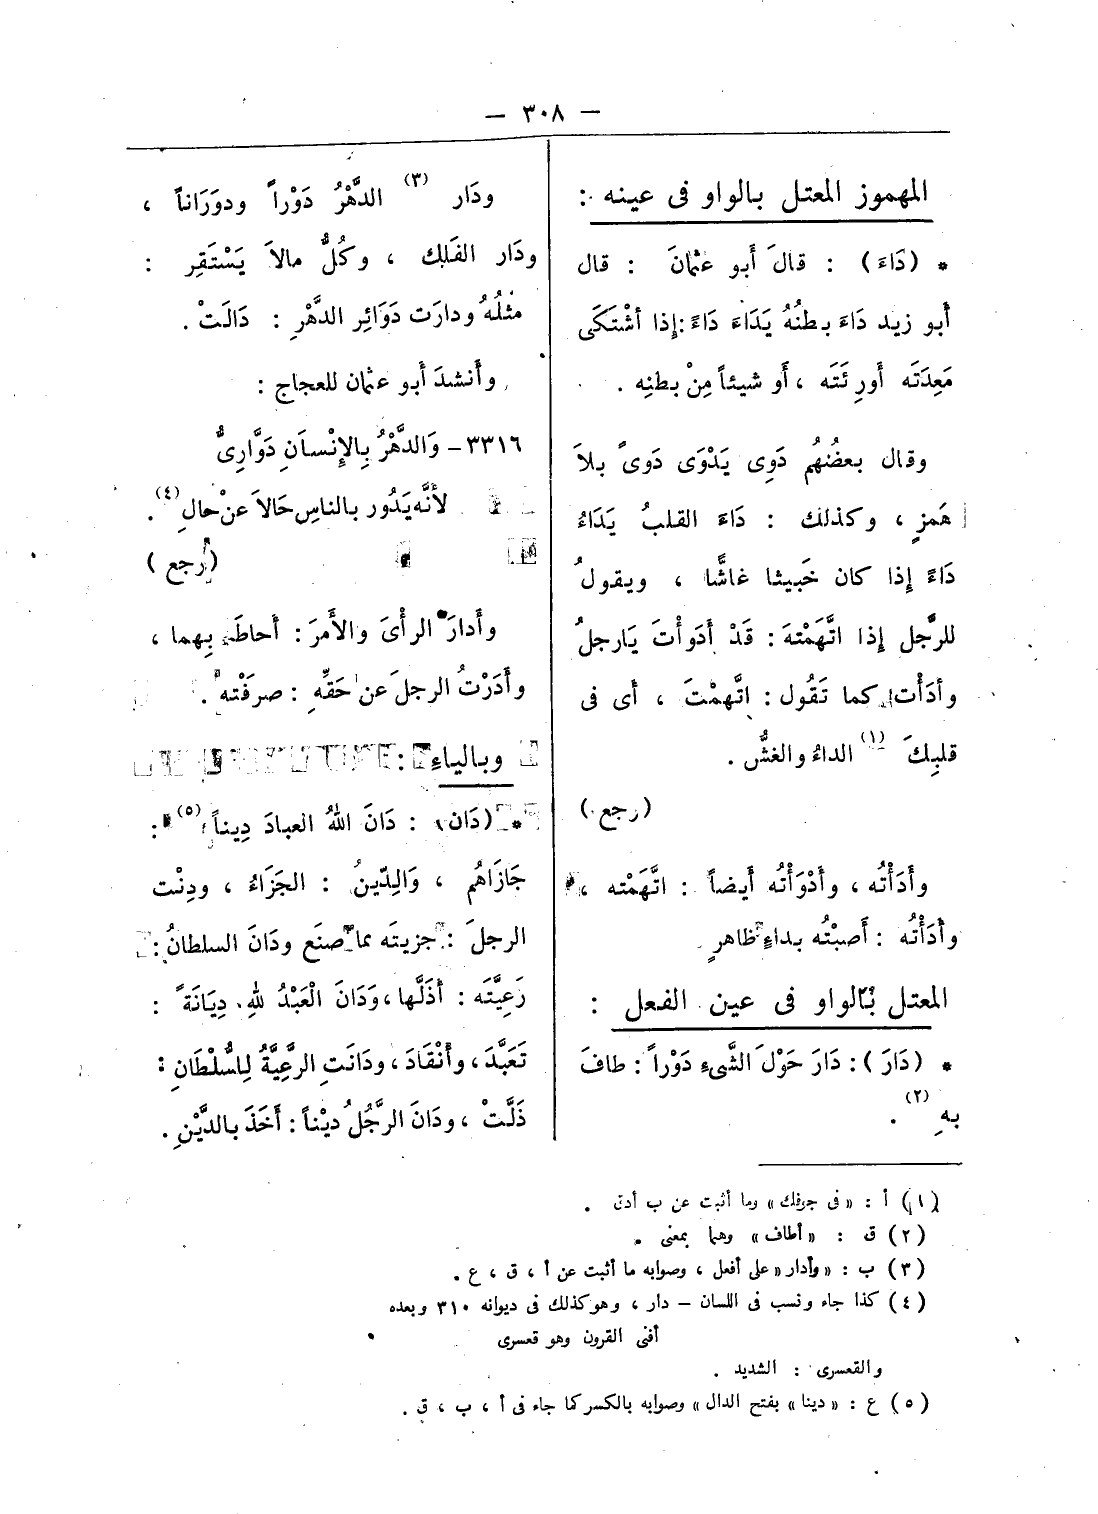 — ٣٠٨ —
المهموز المعتل بالواو فى عينه :
* (دَاءَ) : قالَ أَبو عثمانَ : قال
أَبو زيد دَاءَ بطنُهُ يَدَاءَ دَاءً : إِذا أشْتَكَى
مَعِدَتَه أورِئَتَه ، أَو شيئاً مِنْ بطنِه .
وقال بعضُهُم دَوِى يَدْوَى دَوىً بلاَ
هَمزٍ ، وكذلك : دَاءَ القلبُ يَدَاءُ
دَاءً إِذا كان خَبيثا غاشًّا ، ويقولُ
للرَّجل إِذا اتَّهَمْتهَ : قَدْ أَدَوأْتَ يَارجلُ
وأدَأْت كما تَقُول : اتَّهمْتَ ، أى فى
قلبِكَ (١) الداءُ والغشُّ .
(رجع)
وأَدَأْتُه ، وأَدْوَأْتُه أَيضاً : اتَّهَمْته ،
وأَدَأْتُه : أَصبْتُه بداءٍ ظاهرٍ .
المعتل بالواو فى عين الفعل :
* (دَارَ) : دَارَ حَوْلَ الشَّىءِ دَوْراً : طافَ
بهِ (٢) .
ودَار (٣) الدَّهْرُ دَوْراً ودوَرَاناً ،
ودَار الفَلك ، وكُلُّ مالاَ يَسْتَقِر :
مثلُهُ ودارت دَوَائِر الدهْرِ : دَالَتْ .
وأَنشدَ أبو عثمان للعجاج :
٣٣١٦ – وَالدَّهْرُ بِالإِنْسانِ دَوَّارِىُّ
لأنَّه يَدُور بالناسِ حَالاَ عنْ حالِ (٤) .
(رجع)
وأَدارَ الرأْىَ والأَمرَ : أحاطَ بِهما ،
وأَدَرْتُ الرجلَ عن حَقِّهِ : صرفْته .
وبالياءِ :
* (دَان) : دَانَ اللهُ العبادَ دِيناً (٥) :
جَازَاهُم ، وَالدِّينُ : الجَزَاءُ ، ودِنْت
الرجلَ : جزيتَه بما صنَع ودَانَ السلطانُ :
رَعِيَّتَه : أَذَلَّها ، وَدَانَ الْعَبْدُ للهِ دِيَانَةً :
تَعَبَّدَ ، وأَنْقَادَ ، ودَانَتِ الرَّعِيَّةُ لِلسُّلْطَانِ :
ذَلَّتْ ، ودَانَ الرَّجُلُ ديْناً : أَخَذَ بالدَّيْنِ .
(١) أ : «فى جوفك» وما أثبت عن ب أدق .
(٢) ق : «أطاف» وهما بمعنى .
(٣) ب : «وأدار» على أفعل ، وصوابه ما أثبت عن أ ، ق ، ع .
(٤) كذا جاء ونسب فى اللسان – دار ، وهو كذلك فى ديوانه ٣١٠ وبعده
أفنى القرون وهو قعسرى
والقعسرى : الشديد .
(٥) ع : «دينا» بفتح الدال» وصوابه بالكسر كما جاء فى أ ، ب ، ق .